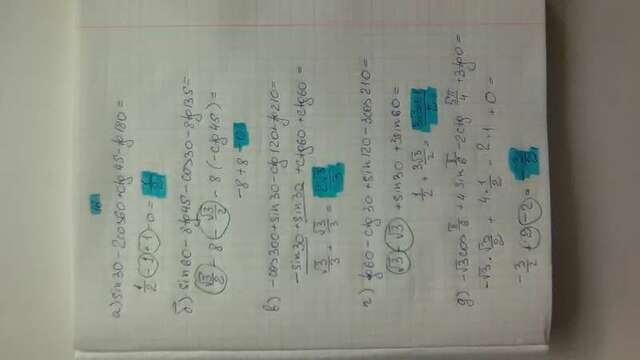 а) sin30 - 2cos60 + ctg45 - tg180 =
1/2 - 1 + 1 - 0 = 1/2
б) sin60 - 8tg45 - cos30 - 8tg135 =
√3/2 - 8 - √3/2 - 8(-ctg45) =
-8 + 8 =
в) -cos300 + sin30 - ctg120 + tg210 =
-sin30 + sin30 + ctg60 + ctg60 =
√3/3 + √3/3 = 2√3/3
г) tg60 - ctg30 + sin120 - 3cos210 =
√3 - √3 + sin30 + 3sin60 =
1/2 + 3√3/2 =
д) -√3cos π/6 + 4sin π/6 - 2ctg π/4 + 3tg0 =
-√3 · √3/2 + 4 · 1/2 - 2 · 1 + 0 =
-3/2 + 2 - 2 = -3/2